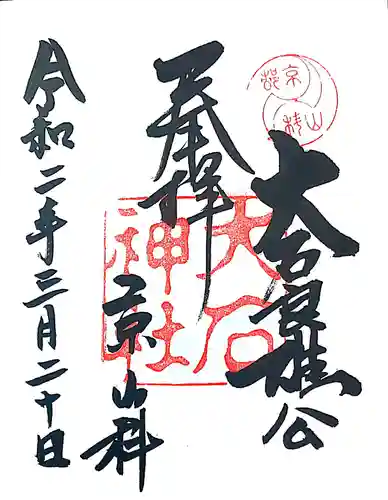 奉拝
大石良雄公
大石
神社
京山科
令和二年三月二十日